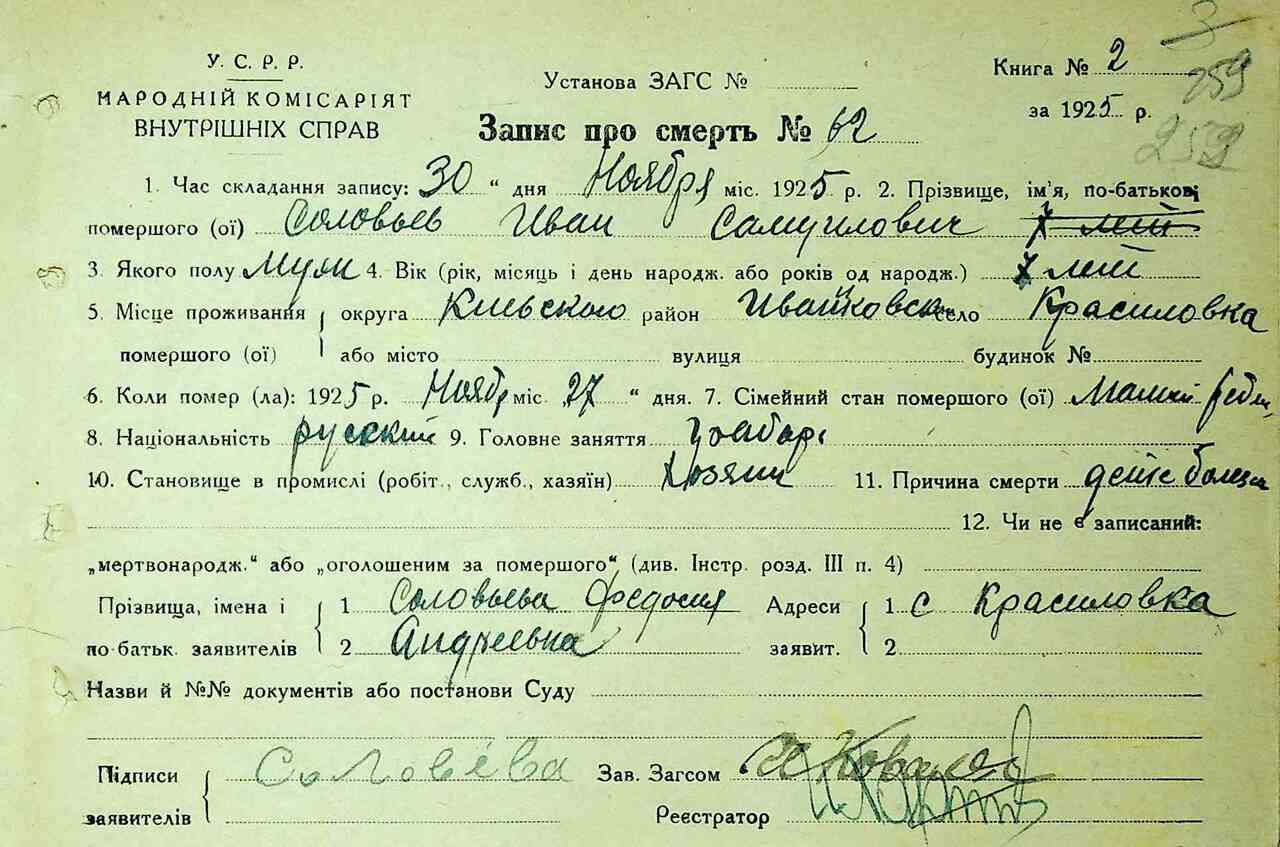 3
У. С. Р. Р.
НАРОДНІЙ КОМІСАРІЯТ
ВНУТРІШНІХ СПРАВ
Установа ЗАГС №
Книга № 2
259
за 1925 р.
259
Запис про смерть № 62
1. Час складання запису: 30 " дня Ноября міс. 1925 р. 2. Прізвище, ім'я, по-батькові
помершого (ої) Соловьев Иван Самуилович 7 лет
3. Якого полу Муж 4. Вік (рік, місяць і день народж. або років од народж.) 7 лет
5. Місце проживання округа Киевского район Иванковск село Красиловка
помершого (ої) або місто вулиця будинок №
6. Коли помер (ла): 1925 р. Ноябр міс. 27 " дня. 7. Сімейний стан помершого (ої)
8. Національність русский 9. Головне заняття
10. Становище в промислі (робіт., служб., хазяїн) Хозяин 11. Причина смерти детс болезн
12. Чи не є записаний:
„мертвонародж." або „оголошеним за помершого" (див. Інстр. розд. III п. 4)
Прізвища, імена і 1 Соловьева Федосия Адреси 1 с Красиловка
по батьк. заявителів 2 Андреевна заявит. 2
Назви й №№ документів або постанови Суду
Підписи Соловева Зав. Загсом
заявителів Реєстратор